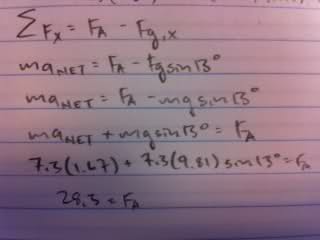 ΣFx = FA - Fg,x
maNET = FA - Fgsin13°
maNET = FA - mgsin13°
maNET + mgsin13° = FA
7.3(1.67) + 7.3(9.81)sin13° = FA
28.3 = FA